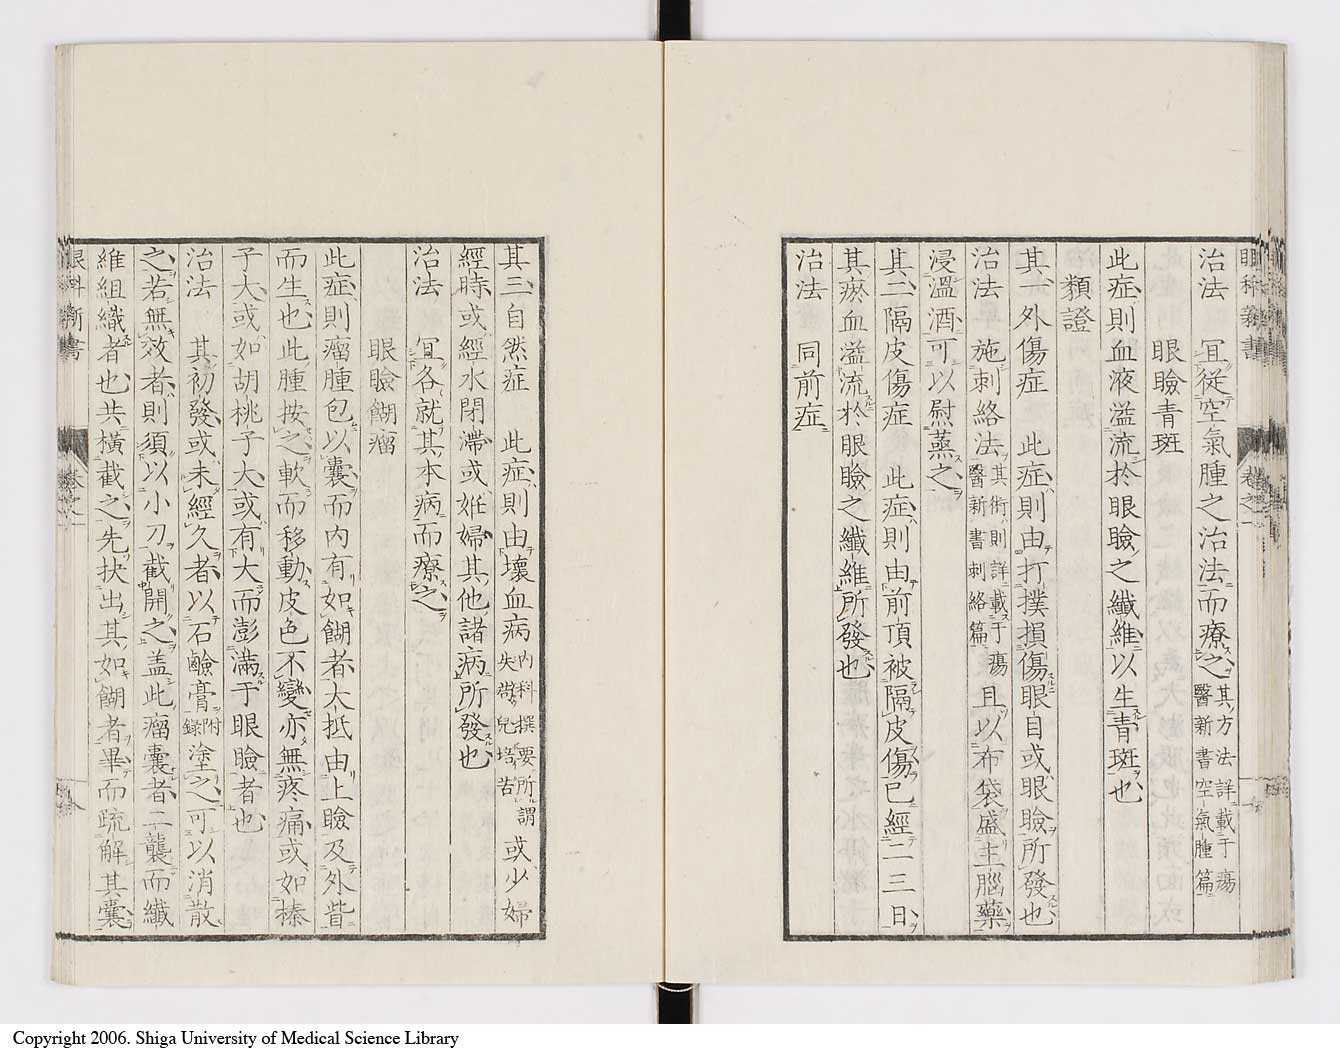 眼科新書
卷之一
治法 宜從空氣腫之治法而療之其方法詳載于瘍醫新書空氣腫篇
眼瞼青斑
此症則血液溢流於眼瞼之纖維以生青斑也
類證
其一外傷症 此症則由打撲損傷眼目或眼瞼所發也
治法 施刺絡法其術則詳載于瘍醫新書刺絡篇且以布袋盛主腦藥
浸溫酒可以慰蒸之
其二隔皮傷症 此症則由前頂被隔皮傷已經二三日
其瘀血溢流於眼瞼之纖維所發也
治法 同前症
其三自然症 此症則由壞血病内科撰要所謂失苟兒培苦或少婦
經時或經水閉滯或妊婦其他諸病所發也
治法 宜各就其本病而療之
眼瞼餬瘤
此症則瘤腫包以囊而内有如餬者大抵由上瞼及外眥
而生也此腫按之軟而移動皮色不變亦無疼痛或如榛
子大或如胡桃子大或有大而澎滿于眼瞼者也
治法 其初發或未經久者以石鹼膏附録塗之可以消散
之若無效者則須以小刀截開之盖此瘤囊者二襲而纖
維組織者也共橫截之先抉出其如餬者畢而疏解其囊
眼科新書
卷之一
Copyright 2006. Shiga University of Medical Science Library